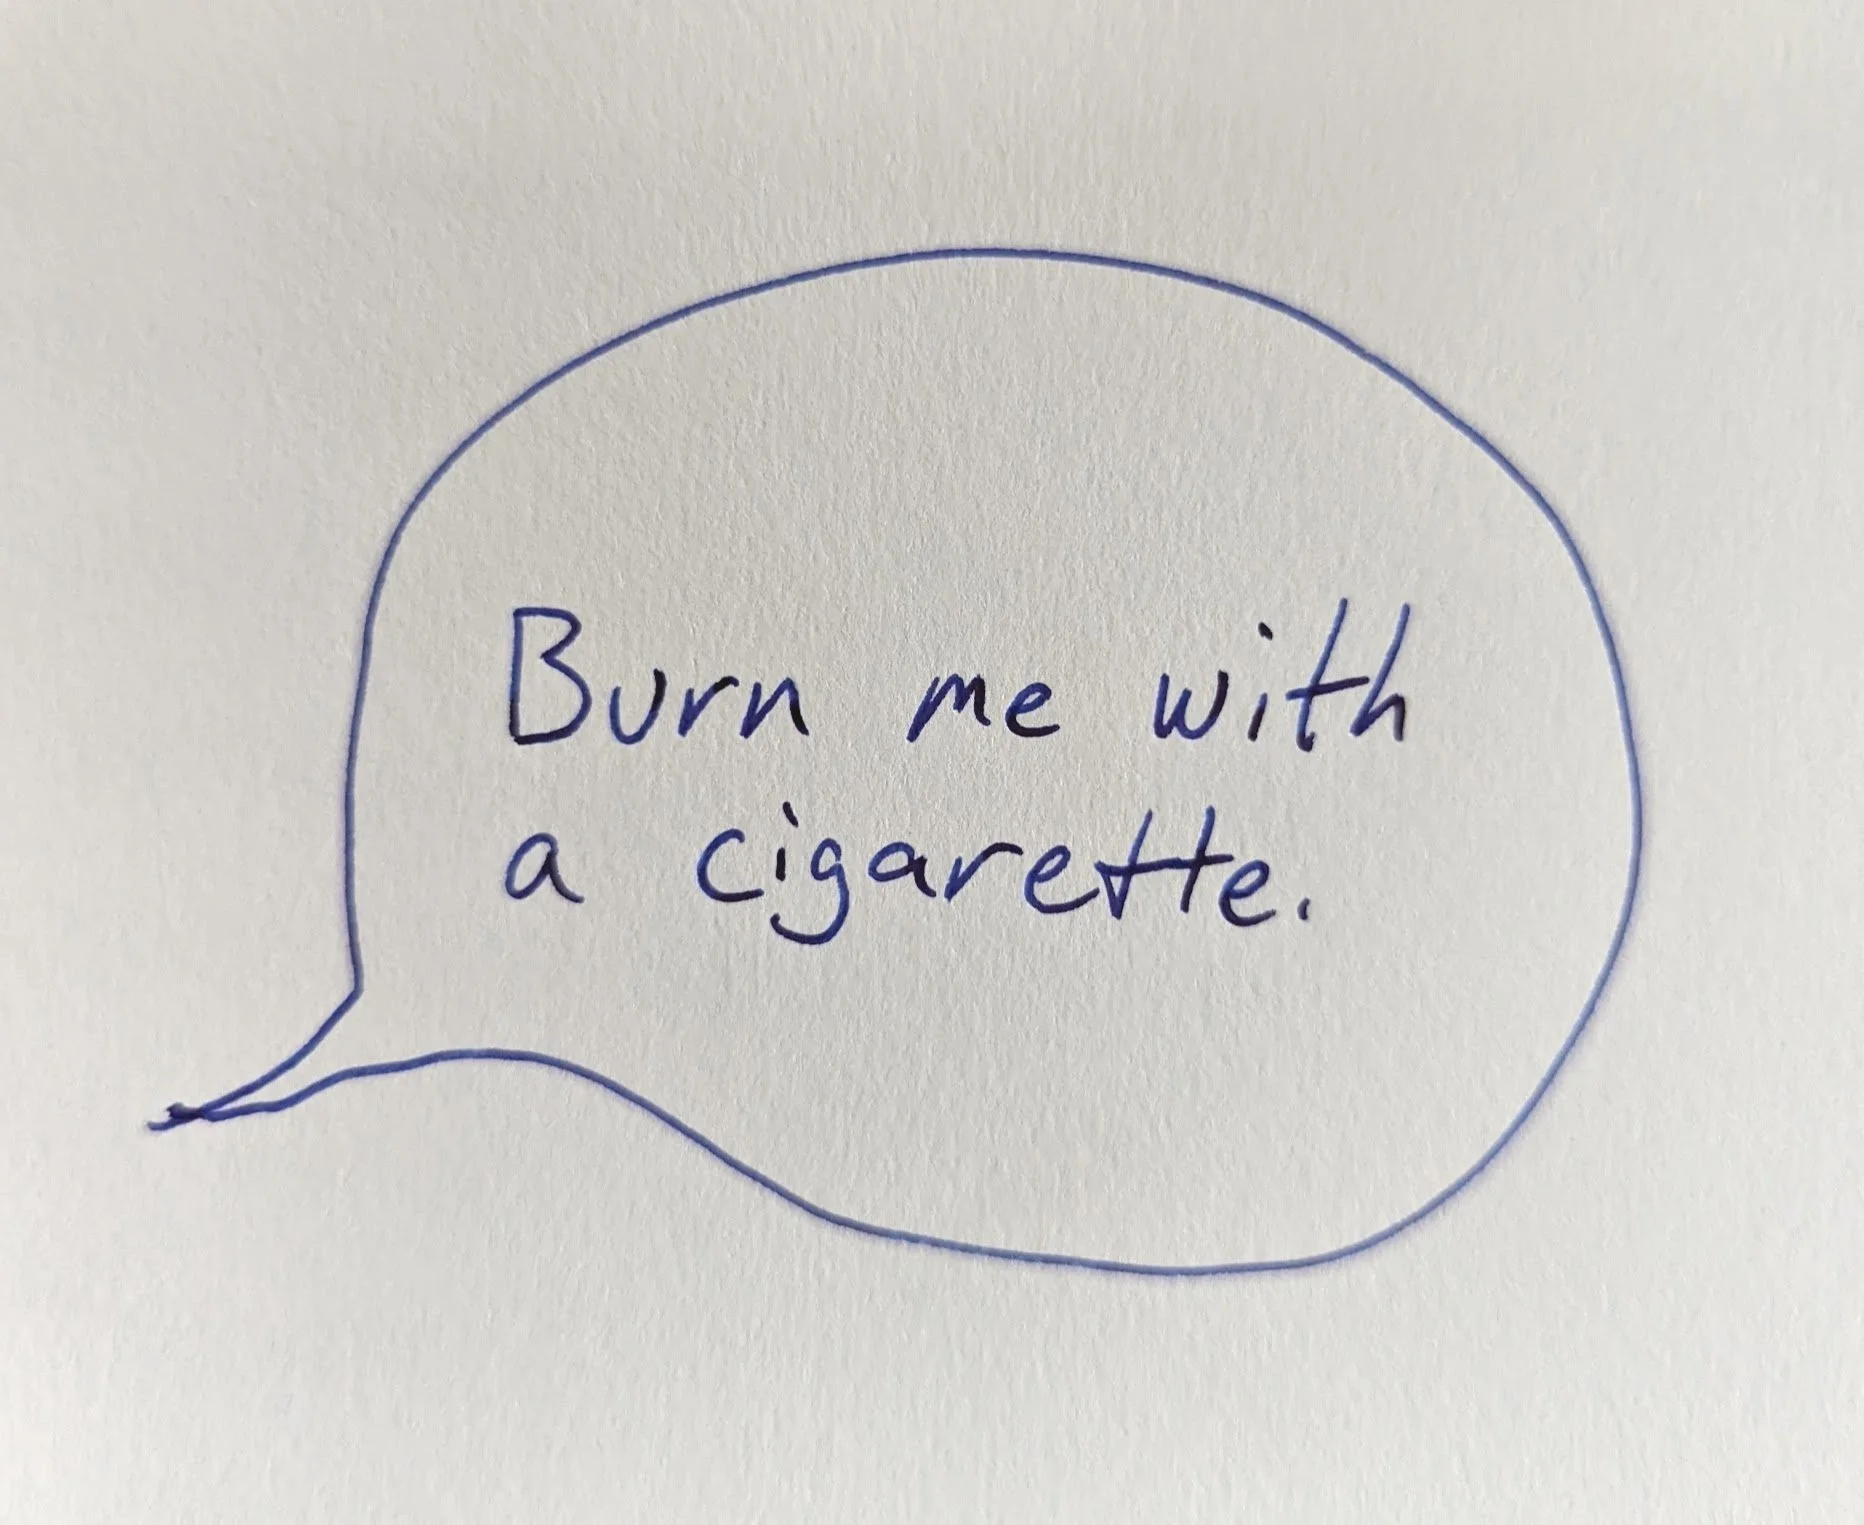 Burn me with
a cigarette.